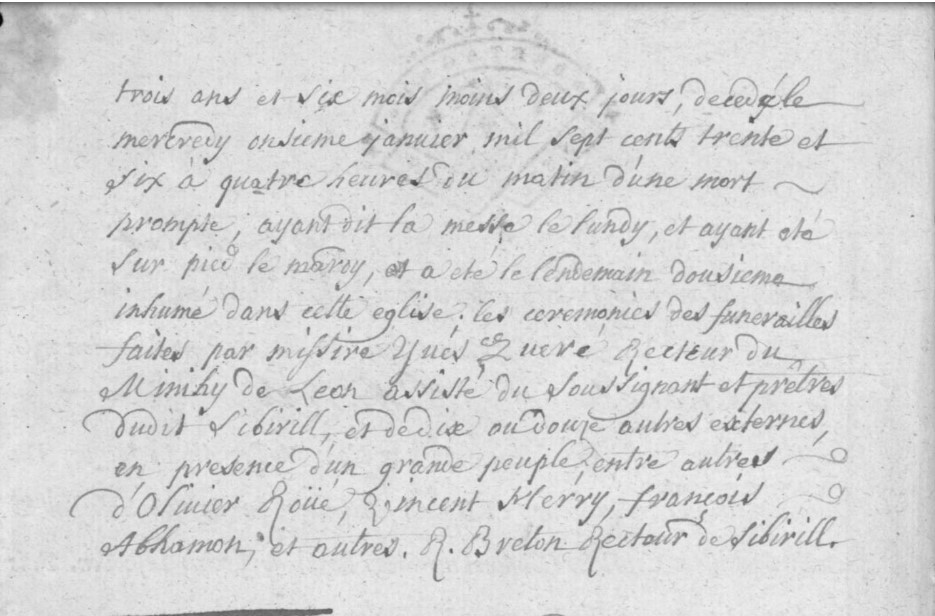 trois ans et six mois moins deux jours, decedé le
mercredy onsieme janvier mil sept cents trente et
six à quatre heures du matin d'une mort
prompte, ayant dit la messe le lundy, et ayant eté
sur pied le mardy, et a eté le lendemain dousieme
inhumé dans cette eglise. les ceremonies des funerailles
faites par missire Yves Queré Recteur du
Minihy de Leon assisté du soussignant et prêtres
dudit Sibirill, et de dix ou douze autres externes,
en presence d'un grande peuple, entre autres
d'Olivier Roüé, Vincent Merry, françois
Abhamon, et autres. R. Breton Recteur de Sibirill.